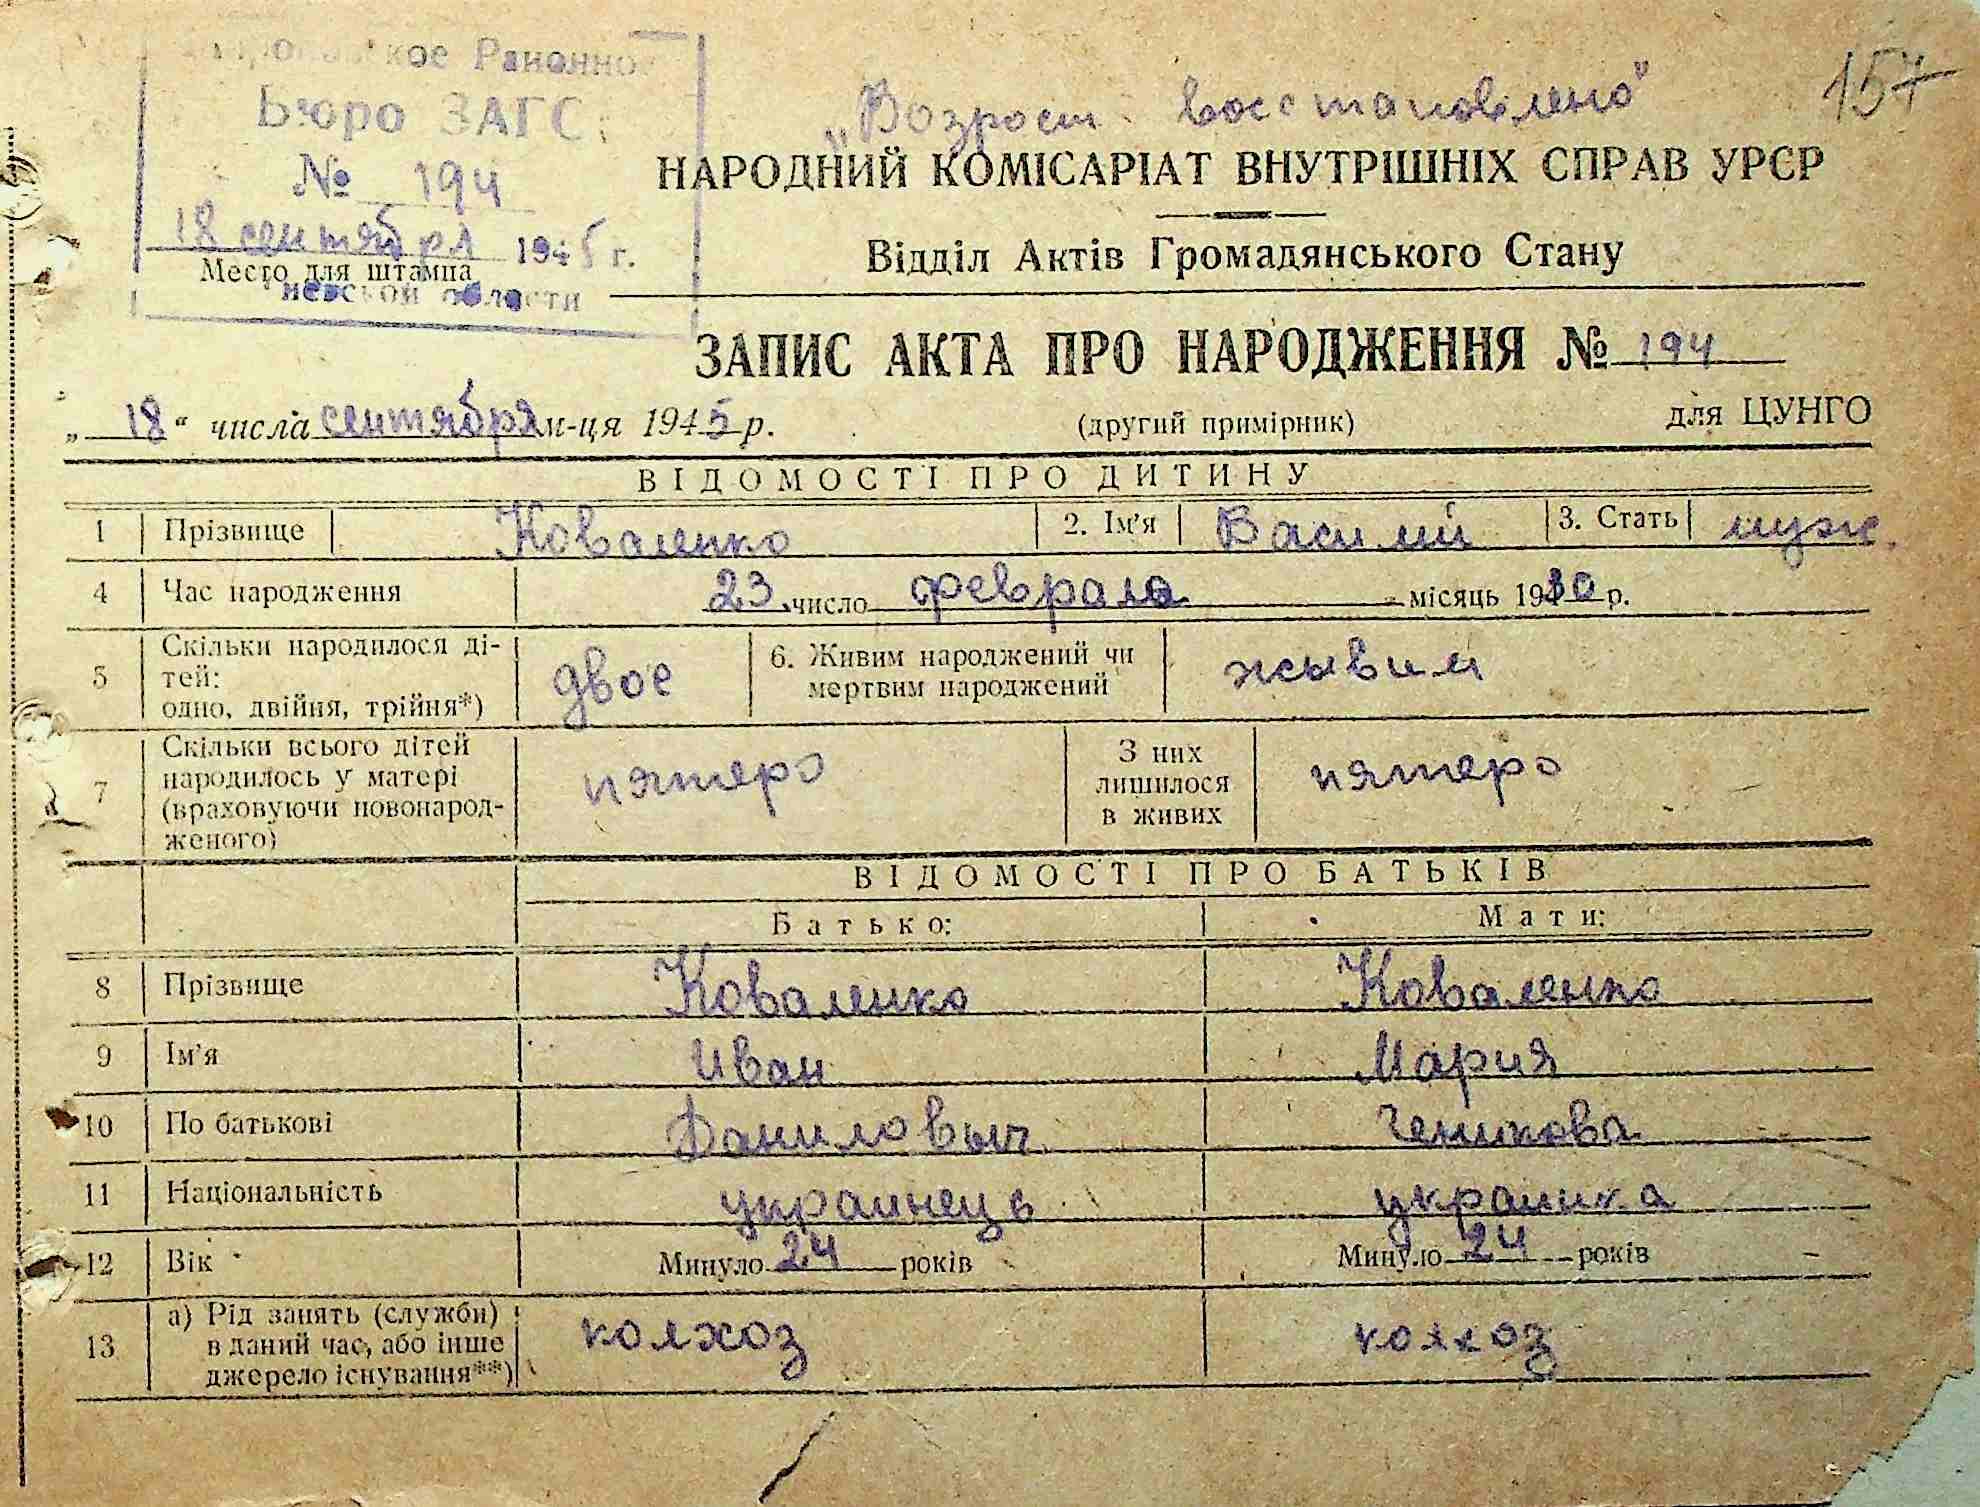 кое Районное
Бюро ЗАГС
№ 194
18 сентября 1945 г.
Место для штампа
области
157
„Возрост восстановлено"
НАРОДНИЙ КОМІСАРІАТ ВНУТРІШНІХ СПРАВ УРСР
Відділ Актів Громадянського Стану
ЗАПИС АКТА ПРО НАРОДЖЕННЯ № 194
„18" числа сентября м-ця 1945 р. (другий примірник) для ЦУНГО
ВІДОМОСТІ ПРО ДИТИНУ
1 Прізвище Коваленко 2. Ім'я Василий 3. Стать муж.
4 Час народження 23 число февраля місяць 1930 р.
5 Скільки народилося ді-
тей:
одно, двійня, трійня*) двое 6. Живим народжений чи
мертвим народжений жывим
7 Скільки всього дітей
народилось у матері
(враховуючи новонарод-
женого) пятеро З них
лишилося
в живих пятеро
ВІДОМОСТІ ПРО БАТЬКІВ
Батько: Мати:
8 Прізвище Коваленко Коваленко
9 Ім'я Иван Мария
10 По батькові Даниловыч
11 Національність украинець украинка
12 Вік Минуло 24 років Минуло 24 років
13 а) Рід занять (служби)
в даний час, або інше
джерело існування**) колхоз колхоз